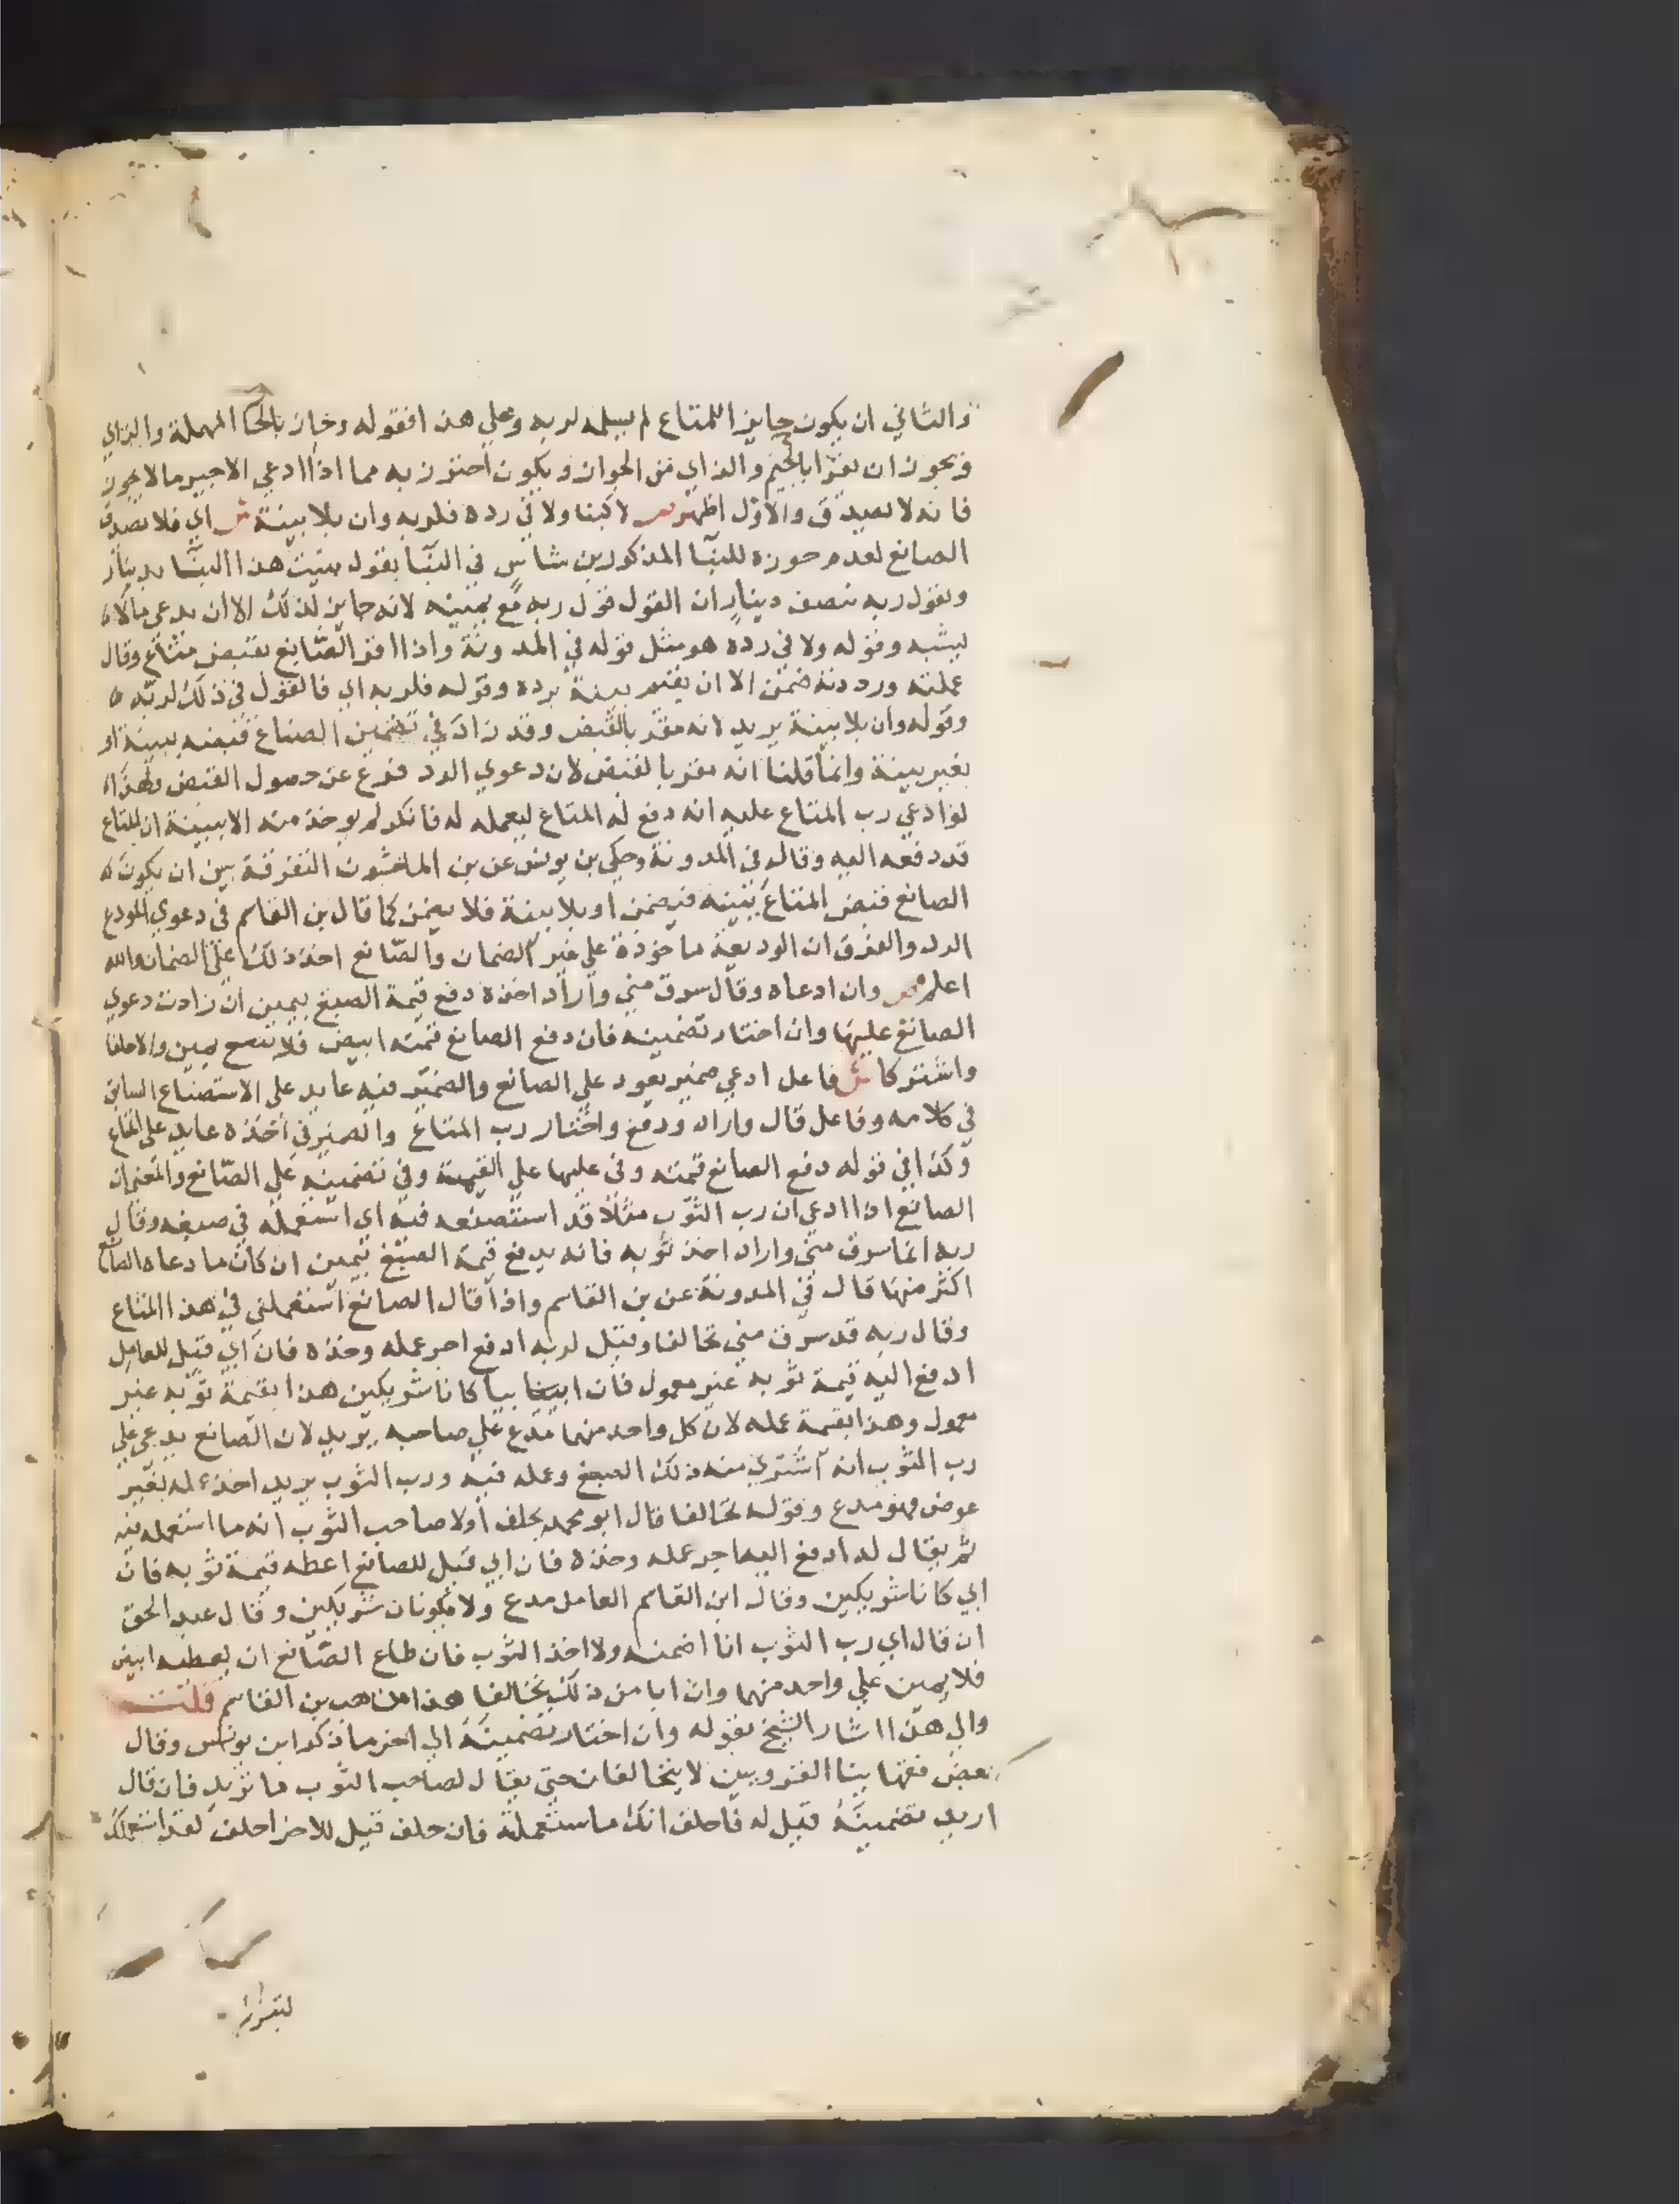 والثاني ان يكون حايزا للمتاع لم يسلمه لربه وعلي هذا فقوله وحاز بالحا المهملة والزاي
ويجوز ان يقرا بالجيم والزاي من الجواز ويكون احترز به مما اذا ادعي الاجير ما لا يجوز
فانه لا يصدق والاول اظهر ص لا كبنا ولا في رده فلربه وان بلا بينة ش اي فلا يصدق
الصانع لعدم حوزه للبنا المذكور بن شاس في البنا يقول بنيت هذا البنا بدينار
ويقول ربه بنصف دينار ان القول قول ربه مع يمينه لانه حايز لذلك الا ان يدعي ما لا
يشبه وقوله ولا في رده هو مثل قوله في المدونة واذا اقر الصانع بقبض متاع وقال
عملته ورددته ضمن الا ان يقيم بينة برده وقوله فلربه اي فالقول في ذلك لربه
وقوله وان بلا بينة يريد لانه مقر بالقبض وقد زاد في تضمين الصناع قبضه ببينة او
بغير بينة وانما قلنا انه مقر بالقبض لان دعوي الرد فرع عن حصول القبض ولهذا
لو ادعي رب المتاع عليه انه دفع له المتاع ليعمله له فانكر لم يوخذ منه الا ببينة ان المتاع
قد دفعه اليه وقاله في المدونة وحكي بن يونس عن بن الماجشون التفرقة بين ان يكون
الصانع قبض المتاع ببينه فيضمن او بلا بينة فلا يضمن كما قال بن القاسم في دعوي المودع
الرد والفرق ان الوديعة ماخوذة علي غير الضمان والصانع اخذ ذلك علي الضمان والله
اعلم ص وان ادعاه وقال سرق مني واراد اخذه دفع قيمة الصبغ بيمين ان زادت دعوي
الصانع عليها وان اختار تضمينه فان دفع الصانع قيمته ابيض فلا يمين والا حلفا
واشتركا ش فاعل ادعي ضمير يعود علي الصانع والضمير فيه عايد علي الاستصناع السابق
في كلامه وفاعل قال واراد ودفع واختار رب المتاع والضمير في اخذه عايد علي المتاع
وكذا في قوله دفع الصانع قيمته وفي عليها علي القيمة وفي تضمينه علي الصانع والمعني ان
الصانع اذا ادعي ان رب الثوب مثلا قد استصنعه فيه اي استعمله في صبغه وقال
ربه انما سرق مني واراد اخذ ثوبه فانه يدفع قيمة الصبغ بيمين ان كان ما دعاه الصانع
اكثر منها قال في المدونة عن بن القاسم واذا قال الصانع استعملني في هذا المتاع
وقال ربه قد سرق مني تحالفا وقيل لربه ادفع اجر عمله وخذه فان ابي قيل للعامل
ادفع اليه قيمة ثوبه غير معمول فان ابيا كانا شريكين هذا بقيمة ثوبه غير
معمول وهذا بقيمة عمله لان كل واحد منهما مدع علي صاحبه يريد لان الصانع يدعي علي
رب الثوب انه اشتري منه ذلك الصبغ وعمله فيه ورب الثوب يريد اخذ عمله بغير
عوض فهو مدع وقوله تحالفا قال ابو محمد يحلف اولا صاحب الثوب انه ما استعمله فيه
ثم يقال له ادفع اليه اجر عمله وخذه فان ابي قيل للصانع اعطه قيمة ثوبه فان
ابي كانا شريكين وقال ابن القاسم العامل مدع ولا يكونان شريكين وقال عبد الحق
ان قال اي رب الثوب انا اضمنه ولا اخذ الثوب فان طاع الصانع ان يعطيه ابيض
فلا يمين علي واحد منهما وان ابا من ذلك تحالفا هذا مذهب بن القاسم قلت
والي هذا اشار الشيخ بقوله وان اختار تضمينه الي اخر ما ذكر ابن يونس وقال
بعض فقهاينا القرويين لا يتحالفان حتي يقال لصاحب الثوب ما تريد فان قال
اريد تضمينه قيل له فاحلف انك ما ستعملته فان حلف قيل للاخر احلف لقد استعملك